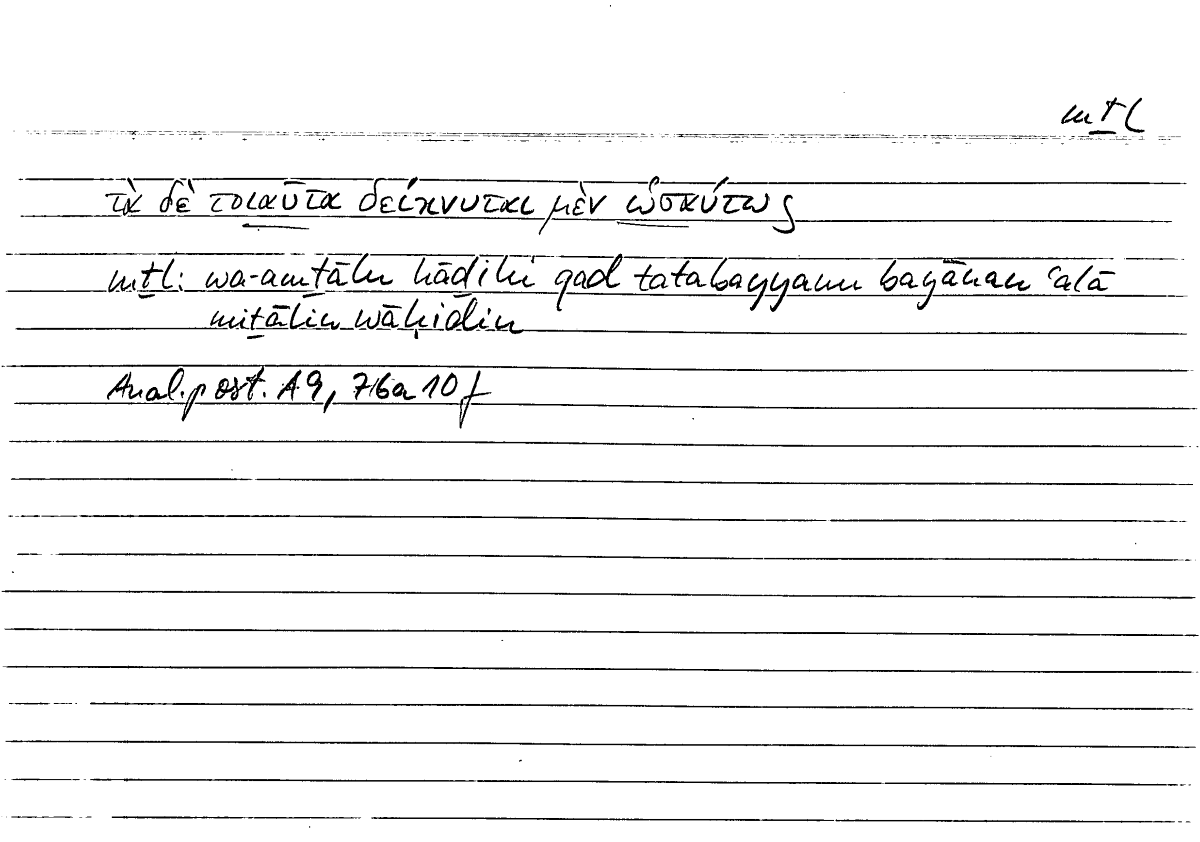 mṯl
τὰ δὲ τοιαῦτα δείκνυται μὲν ὡσαύτως
mṯl: wa-amṯālu hāḏihi qad tatabayyanu bayānan ʿalā
miṯālin wāḥidin
Anal. post. A 9, 76a 10 f